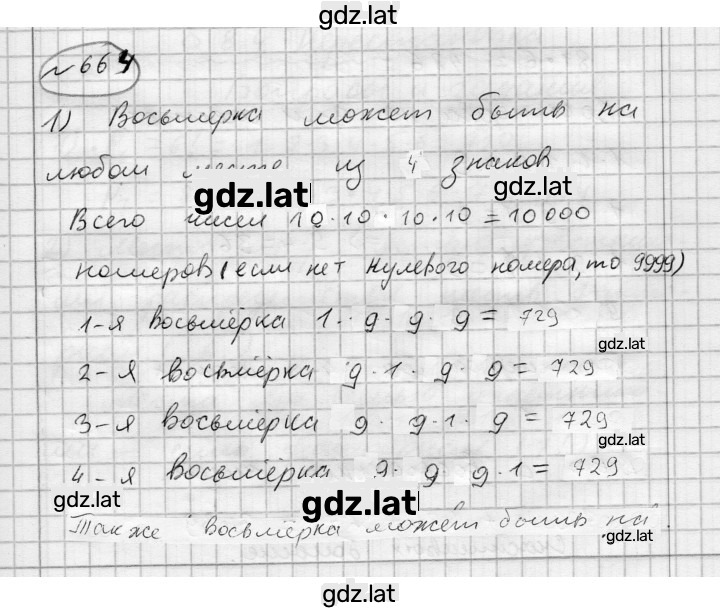 gdz.lat
№ 664
1) Восьмёрка может быть на
любом месте из 4 знаков
gdz.lat
gdz.lat
Всего чисел 10·10·10·10=10000
номеров (если нет нулевого номера, то 9999)
1-я восьмёрка 1·9·9·9= 729
gdz.lat
2-я восьмёрка 9·1·9·9= 729
3-я восьмёрка 9·9·1·9= 729
gdz.lat
4-я восьмёрка 9·9·9·1= 729
gdz.lat
gdz.lat
Также восьмёрка может быть на
gdz.lat
gdz.lat